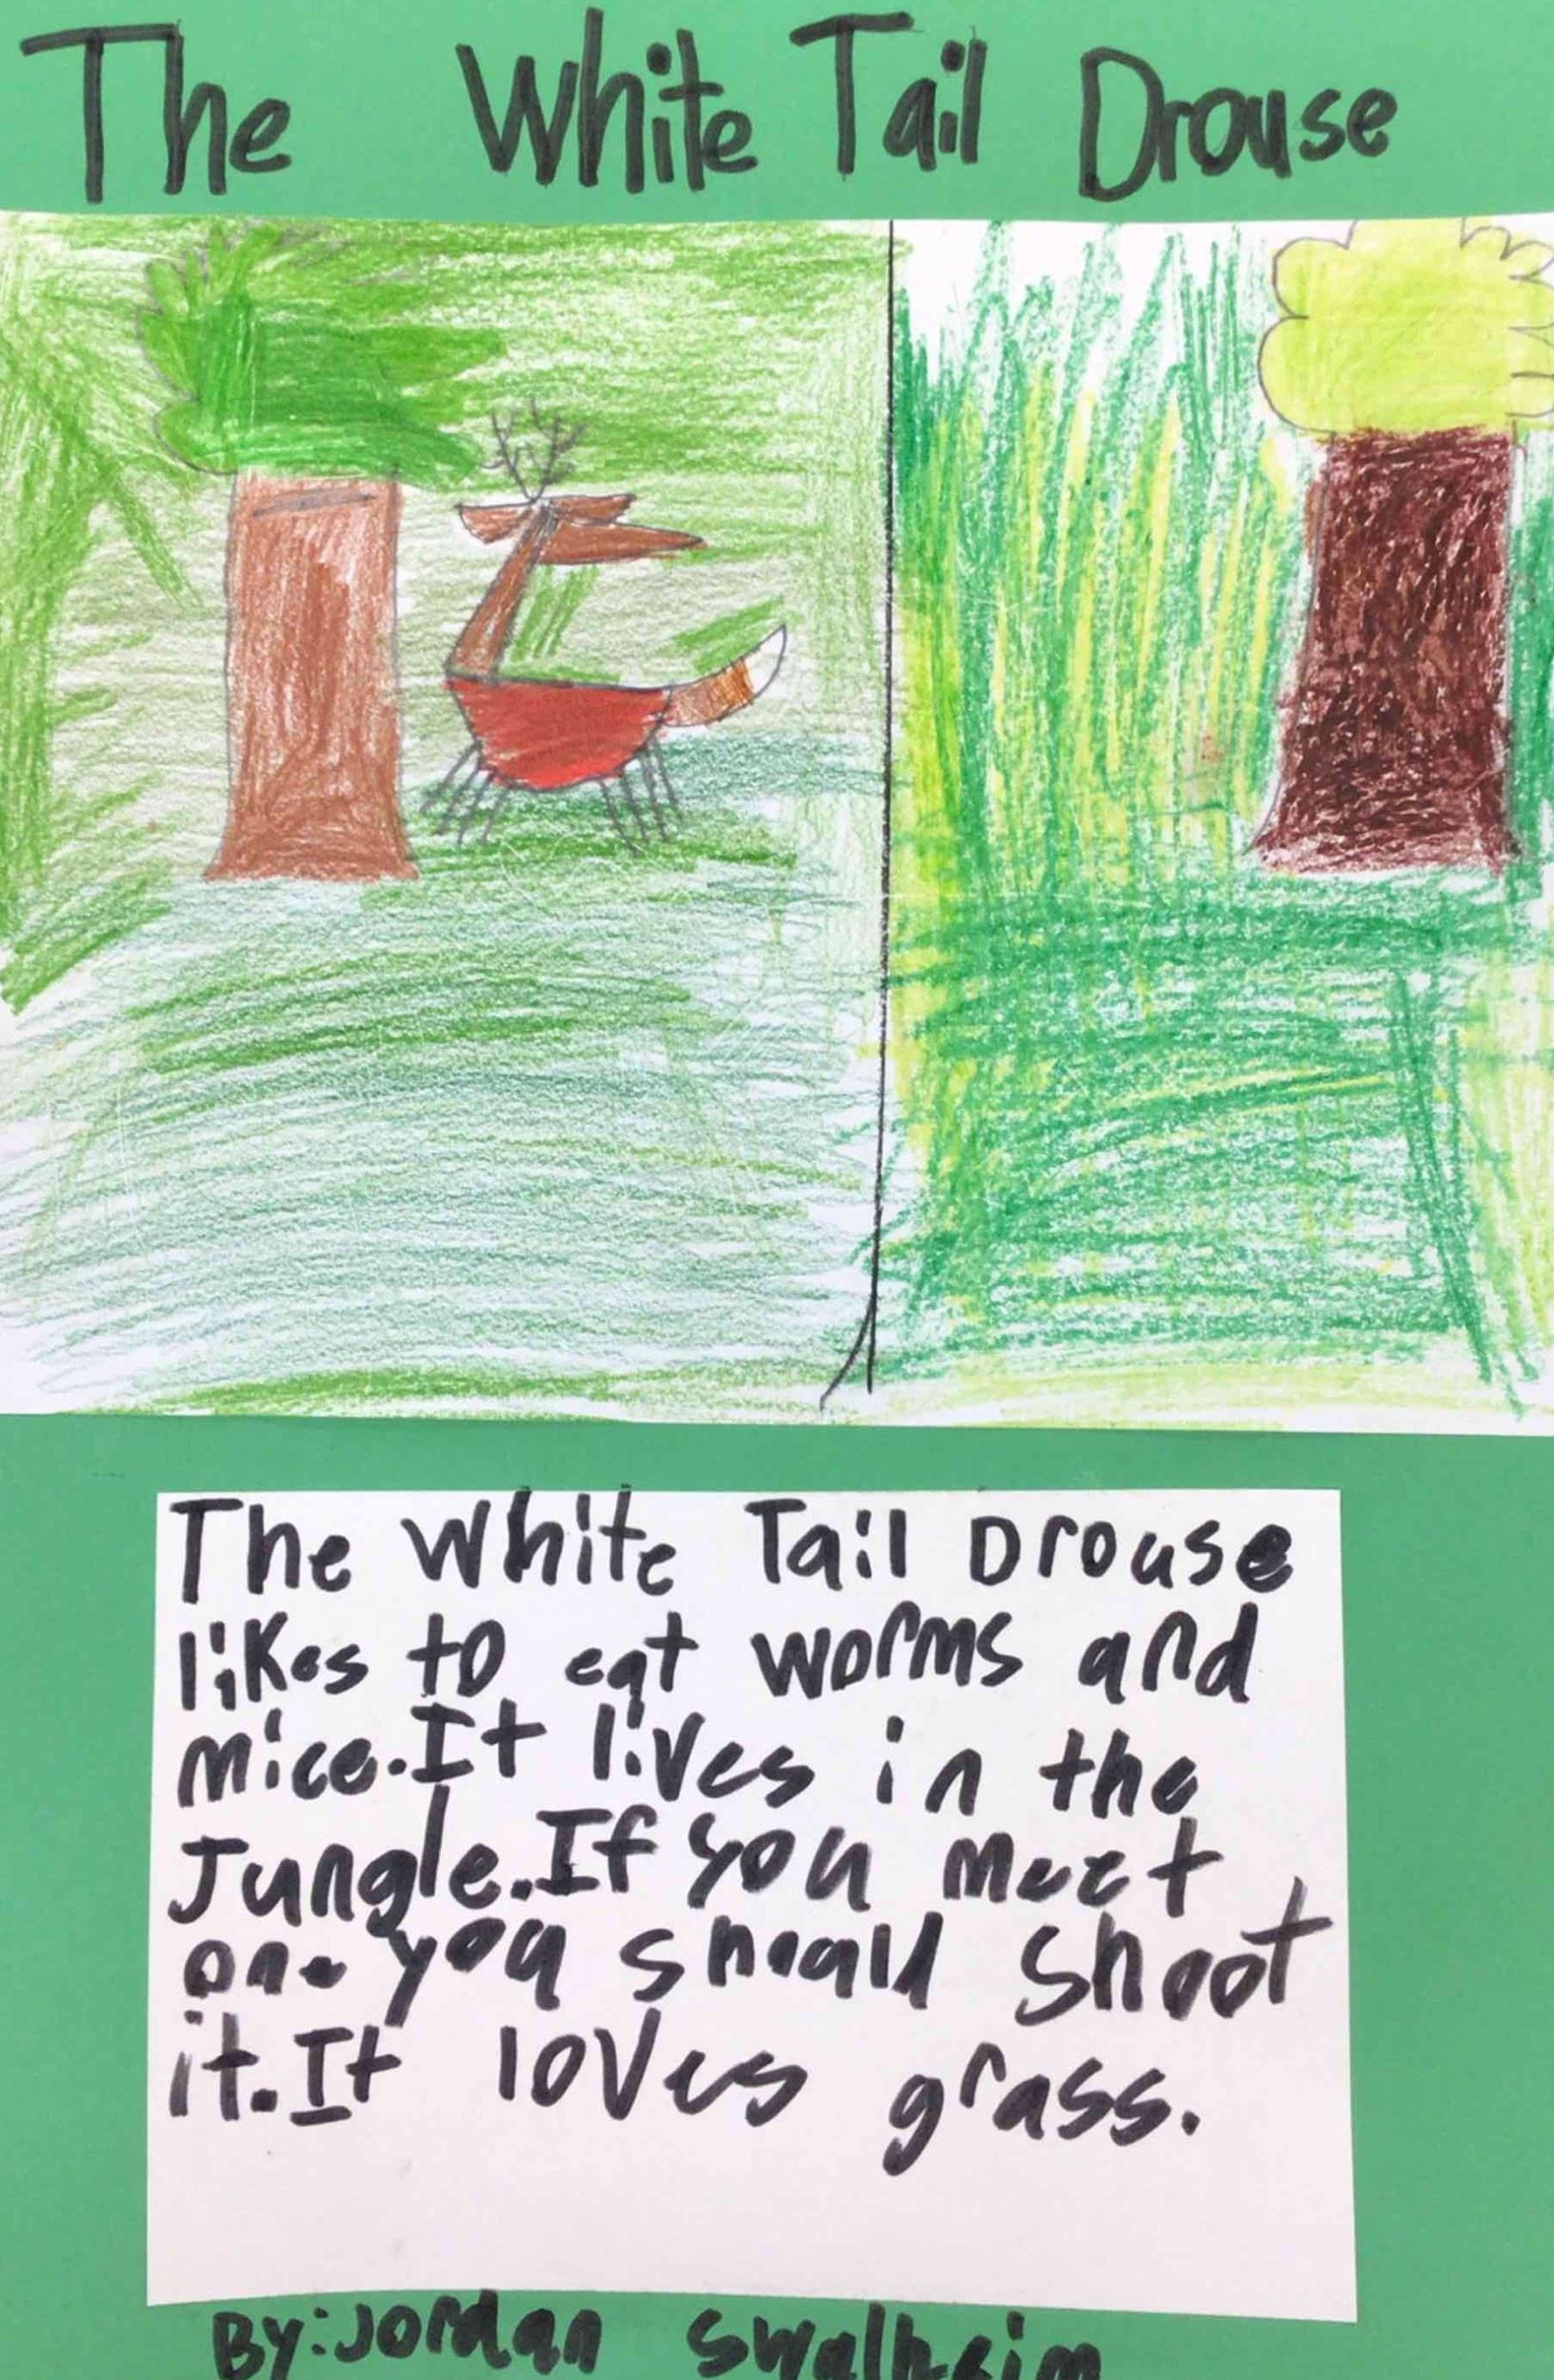 The White Tail Drouse
The White Tail Drouse
likes to eat worms and
mice. It lives in the
Jungle. If you meet
one you should shoot
it. It loves grass.
By: Jordan Swalheim